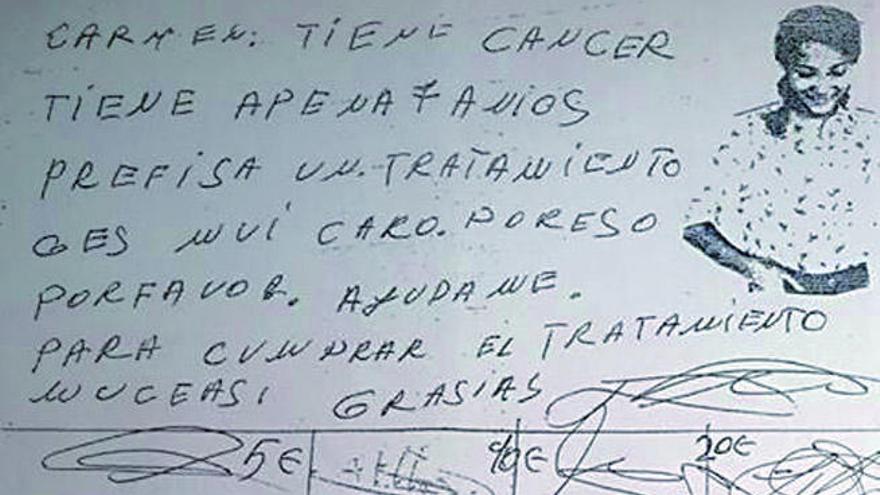 CARMEN: TIENE CANCER
TIENE APENA 7 ANIOS
PREFISA UN. TRATAMIENTO
GES MUI CARO. PORESO
PORFAVOR. AYUDAME.
PARA CUMPRAR EL TRATAMIENTO
MUCEASI GRASIAS
5€ 10€ 20€